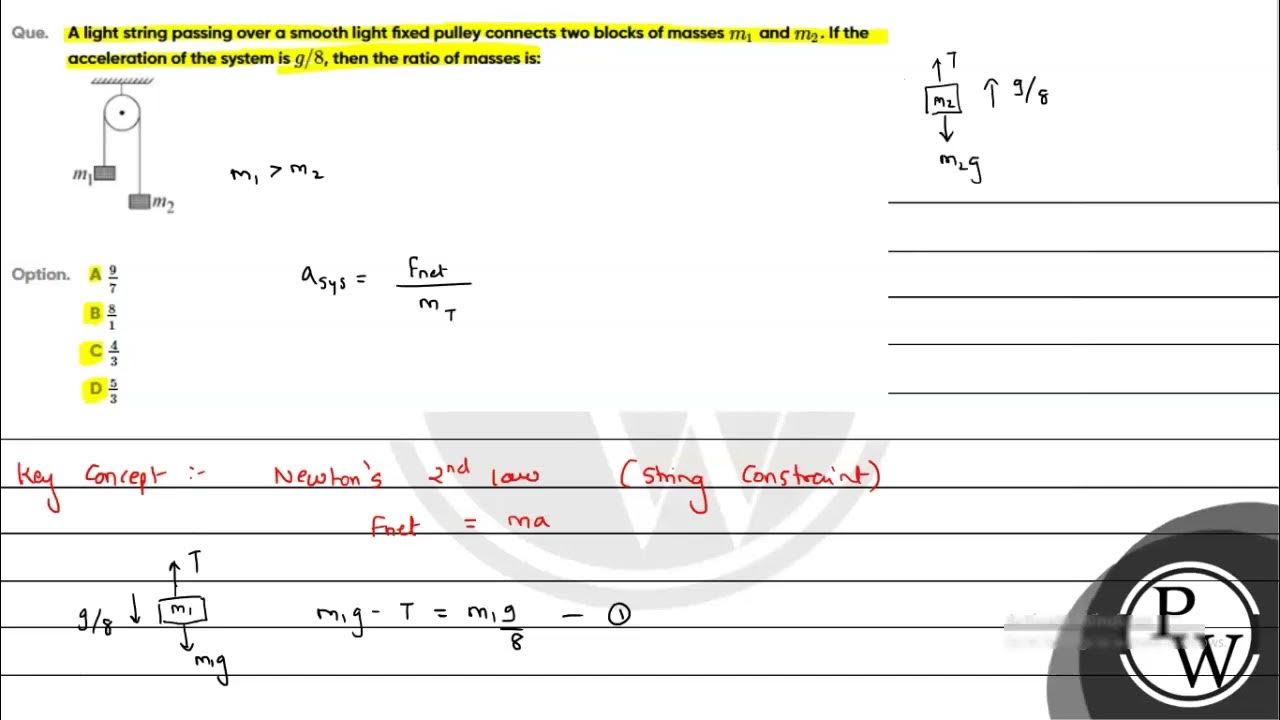 Que. A light string passing over a smooth light fixed pulley connects two blocks of masses m₁ and m₂. If the
acceleration of the system is g/8, then the ratio of masses is:
m₁
m₂
m₁ > m₂
T
m₂
↑ g/8
m₂g
Option. A 9/7
B 8/1
C 4/3
D 5/3
a_sys = Fnet / m_T
Key Concept :- Newton's 2nd law (String Constraint)
Fnet = ma
T
g/8 ↓ m₁
m₁g
m₁g - T = m₁g/8 — ①
P
W